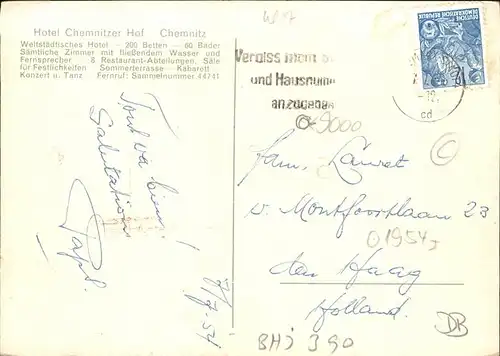 Hotel Chemnitzer Hof Chemnitz
Weltstädtisches Hotel — 200 Betten — 60 Bäder
Sämtliche Zimmer mit fließendem Wasser und
Fernsprecher 8 Restaurant-Abteilungen. Säle
für Festlichkeiten Sommerterrasse Kabarett
Konzert u. Tanz Fernruf: Sammelnummer 44741
Tout va bien!
Salutations
Papi.
7/7.54
Vergiss nicht
und Hausnum
anzugeben
DEUTSCHE
DEMOKRATISCHE REPUBLIK
12
cd
9000
fam. Lauret
v. Montfoortlaan 23
01954
den Haag
Holland.
BHJ 390
DB